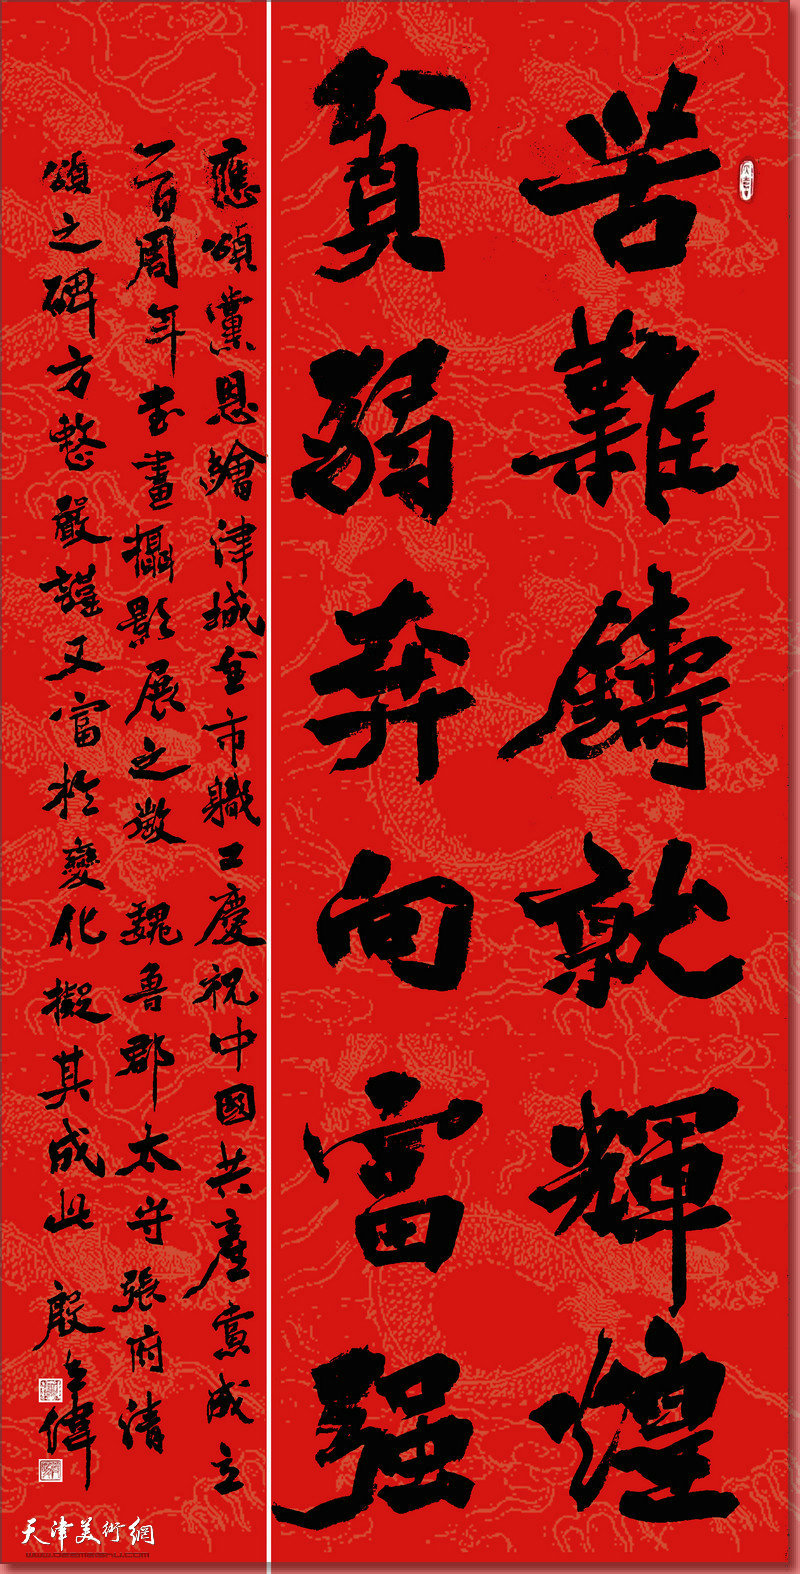 苦難鑄就輝煌
貧弱奔向富强
應頌黨恩繪津城全市職工慶祝中國共產党成立
一百周年書畫攝影展之徵 魏魯郡太守張府清
頌之碑方整嚴謹又富於變化擬其成此 殷士偉
天津美術網